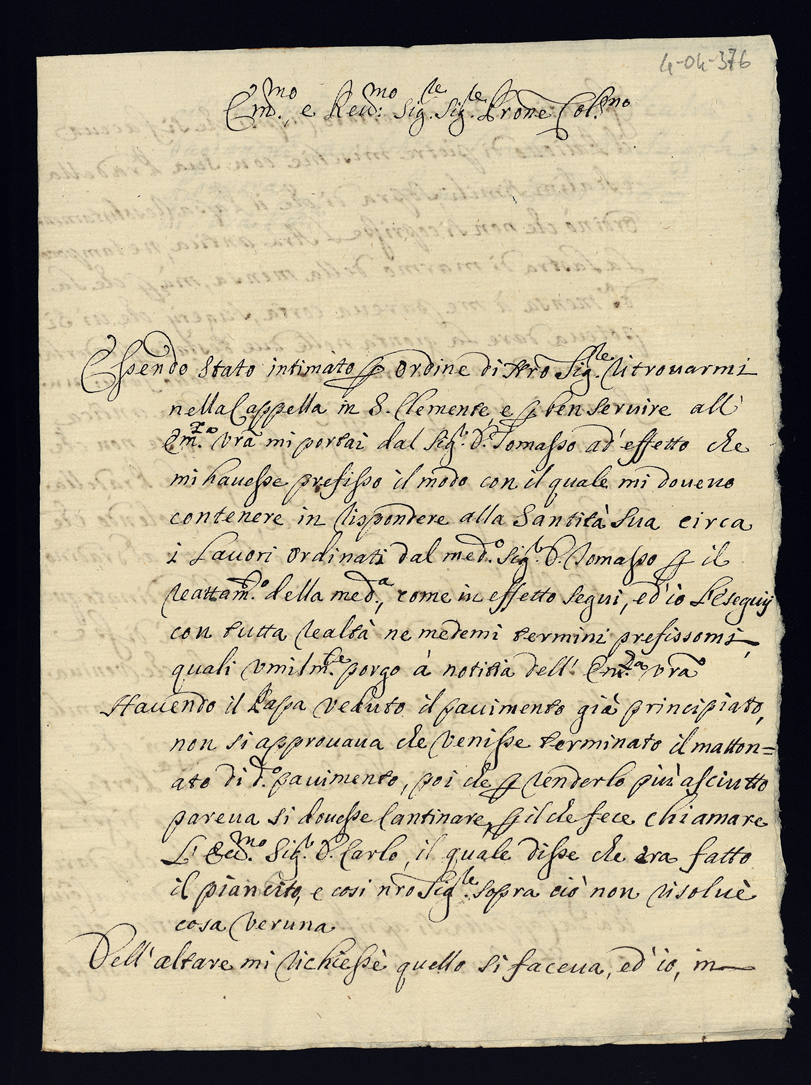 4-04-376
Em.mo e Reu.mo Sig.re Sig.re Prone Col.mo
Essendo stato intimato p ordine di Nro Sig.re ritrouarmi
nella Cappella in S. Clemente, e p ben seruire all'
Em.za vra mi portai dal Sig.r D. Tomasso ad' effetto che
mi hauesse prefisso il modo con il quale mi doueuo
contenere in rispondere alla Santità Sua circa
i lauori ordinati dal med.o Sig.r D. Tomasso p il
reattam.to della med.a, come in effetto segui, ed' io l'eseguij
con tutta realtà ne medemi termini prefissomi,
quali vmilm.te porgo à notitia dell' Em.za vra
Hauendo il Papa veduto il pauimento già principiato,
non si approuaua che venisse terminato il matton=
ato di d.o pauimento, poi che p renderlo più asciutto
pareua si douesse Cantinare, p il che fece chiamare
l' Ecc.mo Sig.r D. Carlo, il quale disse che era fatto
il piancito, e cosi nro Sig.re sopra ciò non risoluè
cosa veruna
Dell' altare mi richiesse quello si faceua, ed' io, in